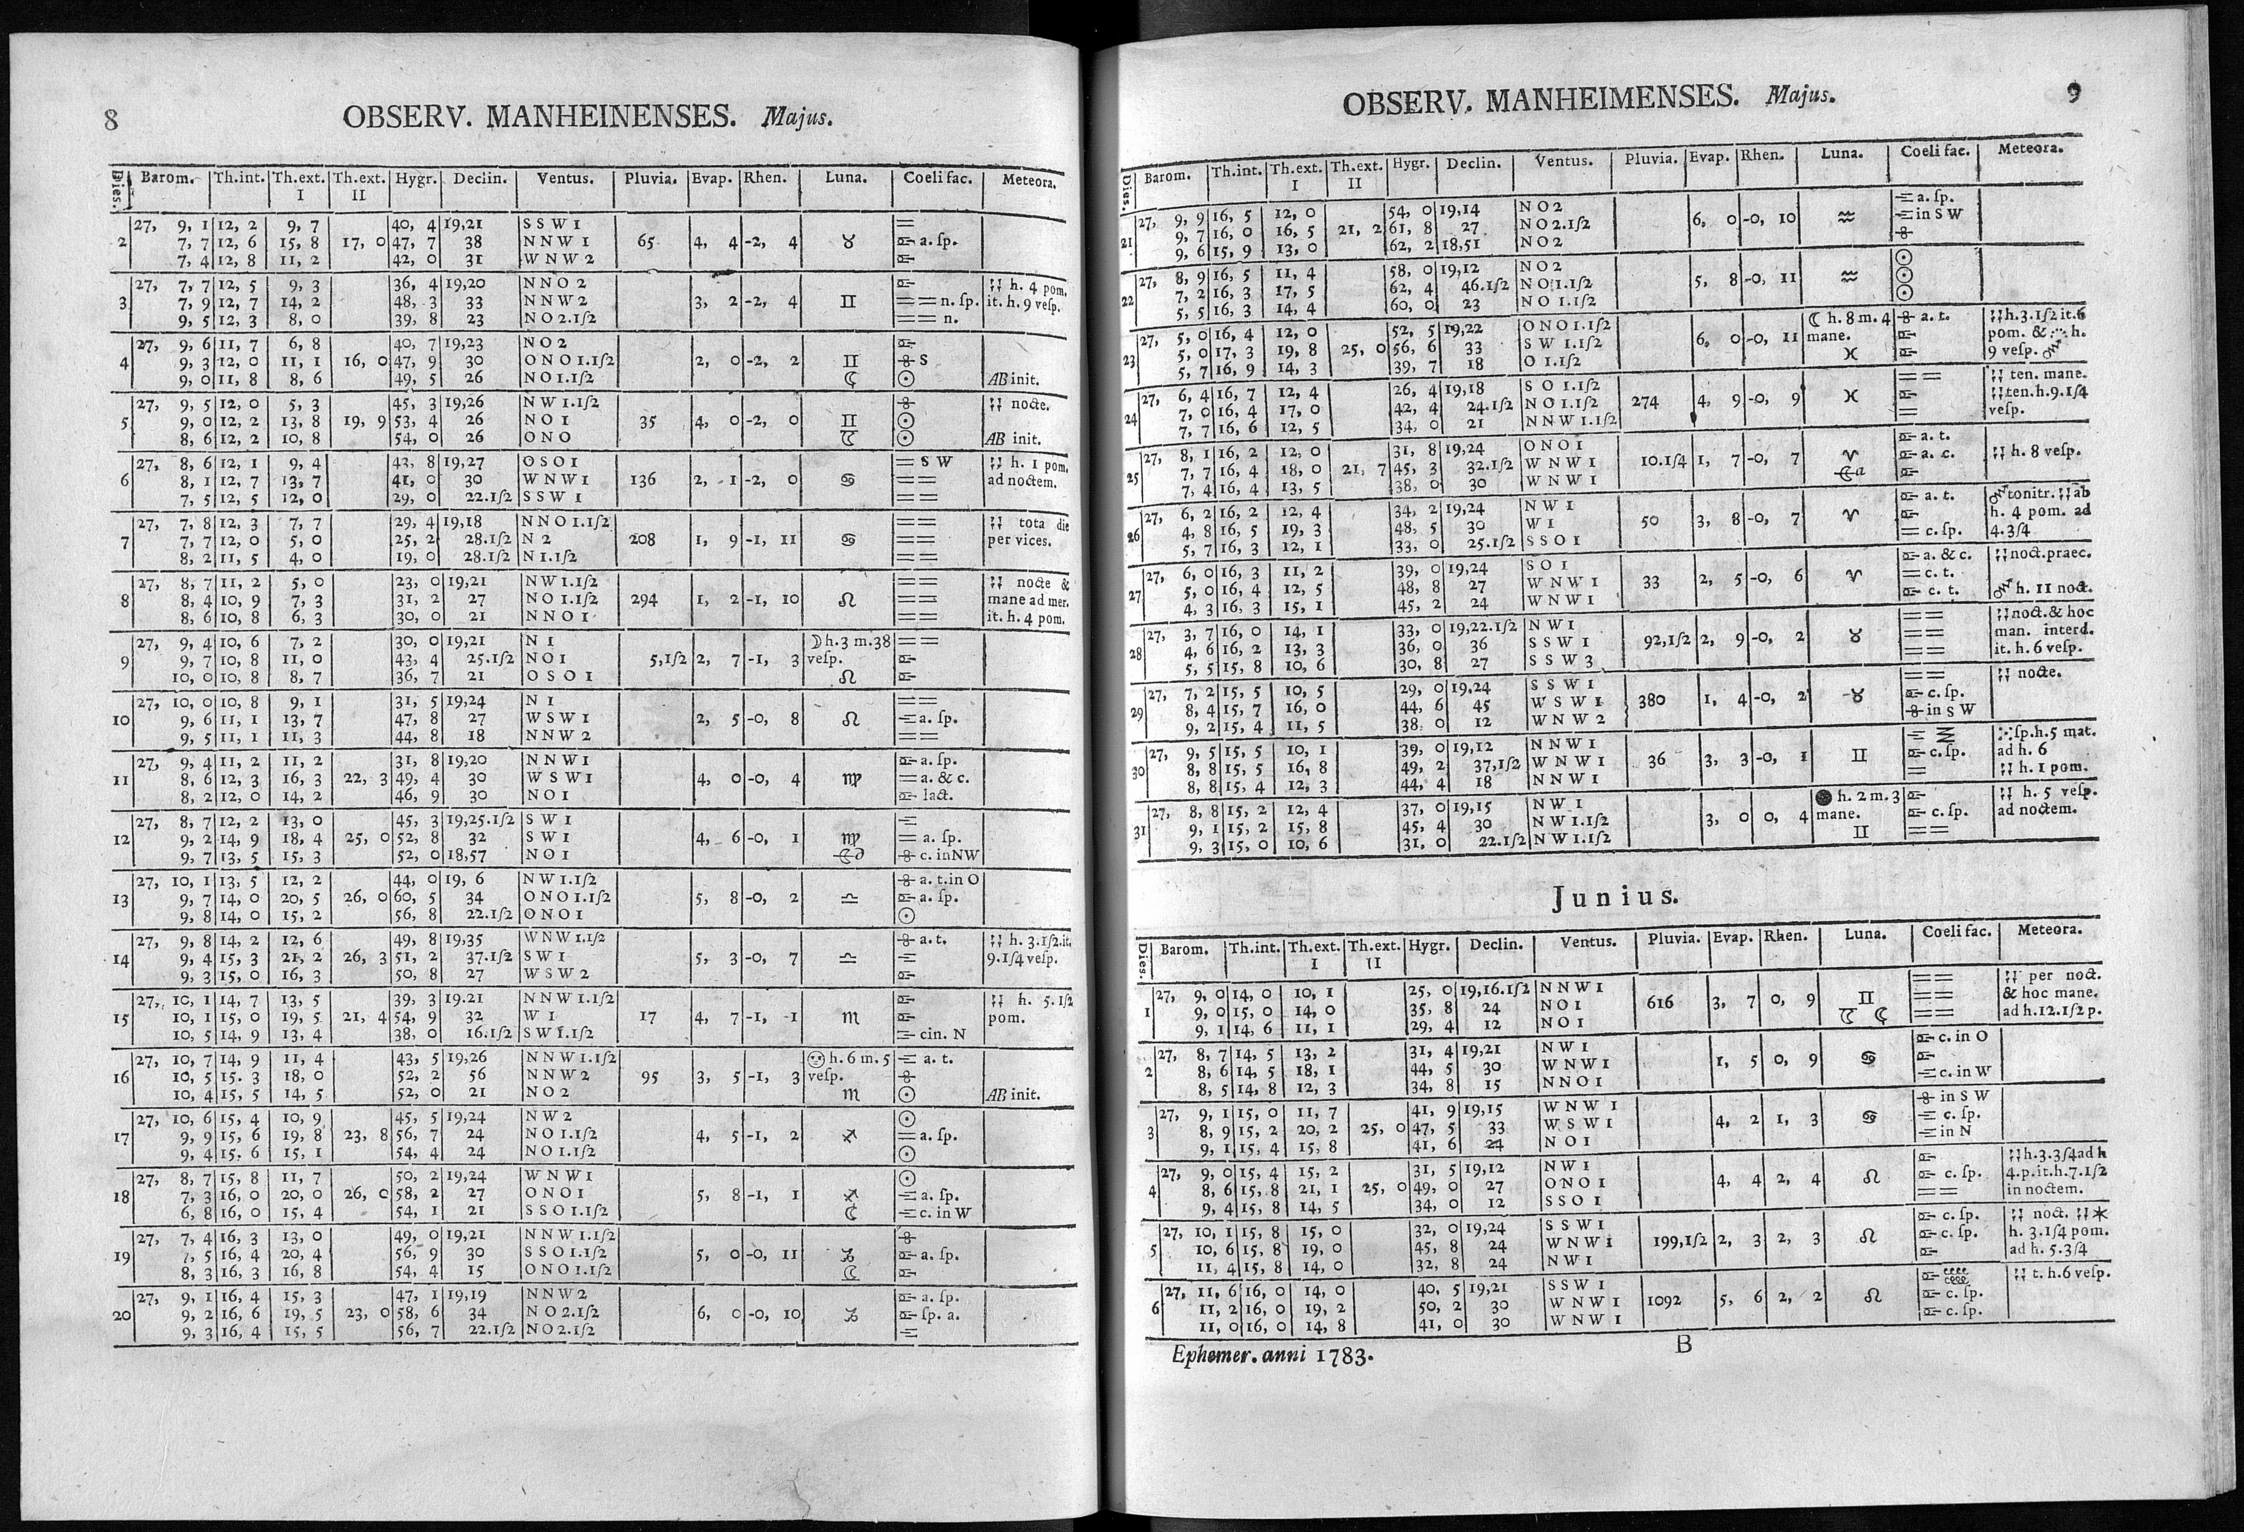 8 OBSERV. MANHEINENSES. Majus.
Dies. Barom. Th.int. Th.ext. I Th.ext. II Hygr. Declin. Ventus. Pluvia. Evap. Rhen. Luna. Coeli fac. Meteora.
27, 9, 1 12, 2 9, 7 40, 4 19,21 SSW 1
2 7, 7 12, 6 15, 8 17, 0 47, 7 38 NNW 1 65 4, 4 -2, 4 ♉ a. ſp.
7, 4 12, 8 11, 2 42, 0 31 WNW 2
27, 7, 7 12, 5 9, 3 36, 4 19,20 NNO 2 h. 4 pom.
3 7, 9 12, 7 14, 2 48, 3 33 NNW 2 3, 2 -2, 4 ♊ n. ſp. it. h. 9 veſp.
9, 5 12, 3 8, 0 39, 8 23 NO 2.1ſ2 n.
27, 9, 6 11, 7 6, 8 40, 7 19,23 NO 2
4 9, 3 12, 0 11, 1 16, 0 47, 9 30 ONO 1.1ſ2 2, 0 -2, 2 ♊ S
9, 0 11, 8 8, 6 49, 5 26 NO 1.1ſ2 ☾ ☉ AB init.
27, 9, 5 12, 0 5, 3 45, 3 19,26 NW 1.1ſ2 nocte.
5 9, 0 12, 2 13, 8 19, 9 53, 4 26 NO 1 35 4, 0 -2, 0 ♊ ☉
8, 6 12, 2 10, 8 54, 0 26 ONO ☉ AB init.
27, 8, 6 12, 1 9, 4 43, 8 19,27 OSO 1 S W h. 1 pom.
6 8, 1 12, 7 13, 7 41, 0 30 WNW 1 136 2, 1 -2, 0 ♋ ad noctem.
7, 5 12, 5 12, 0 29, 0 22.1ſ2 SSW 1
27, 7, 8 12, 3 7, 7 29, 4 19,18 NNO 1.1ſ2 tota die
7 7, 7 12, 0 5, 0 25, 2 28.1ſ2 N 2 208 1, 9 -1, 11 ♋ per vices.
8, 2 11, 5 4, 0 19, 0 28.1ſ2 N 1.1ſ2
27, 8, 7 11, 2 5, 0 23, 0 19,21 NW 1.1ſ2 nocte &
8 8, 4 10, 9 7, 3 31, 2 27 NO 1.1ſ2 294 1, 2 -1, 10 ♌ mane ad mer.
8, 6 10, 8 6, 3 30, 0 21 NNO 1 it. h. 4 pom.
27, 9, 4 10, 6 7, 2 30, 0 19,21 N 1 ☽ h. 3 m. 38
9 9, 7 10, 8 11, 0 43, 4 25.1ſ2 NO 1 5,1ſ2 2, 7 -1, 3 veſp.
10, 0 10, 8 8, 7 36, 7 21 OSO 1 ♌
27, 10, 0 10, 8 9, 1 31, 5 19,24 N 1
10 9, 6 11, 1 13, 7 47, 8 27 WSW 1 2, 5 -0, 8 ♌ a. ſp.
9, 5 11, 1 11, 3 44, 8 18 NNW 2
27, 9, 4 11, 2 11, 2 31, 8 19,20 NNW 1 a. ſp.
11 8, 6 12, 3 16, 3 22, 3 49, 4 30 WSW 1 4, 0 -0, 4 ♍ a. & c.
8, 2 12, 0 14, 2 46, 9 30 NO 1 lact.
27, 8, 7 12, 2 13, 0 45, 3 19,25.1ſ2 SW 1
12 9, 2 14, 9 18, 4 25, 0 52, 8 32 SW 1 4, 6 -0, 1 ♍ a. ſp.
9, 7 13, 5 15, 3 52, 0 18,57 NO 1 c. in NW
27, 10, 1 13, 5 12, 2 44, 0 19, 6 NW 1.1ſ2 a. t. in O
13 9, 7 14, 0 20, 5 26, 0 60, 5 34 ONO 1.1ſ2 5, 8 -0, 2 ♎ a. ſp.
9, 8 14, 0 15, 2 56, 8 22.1ſ2 ONO 1 ☉
27, 9, 8 14, 2 12, 6 49, 8 19,35 WNW 1.1ſ2 a. t. h. 3.1ſ2.it.
14 9, 4 15, 3 21, 2 26, 3 51, 2 37.1ſ2 SW 1 5, 3 -0, 7 ♎ 9.1ſ4 veſp.
9, 3 15, 0 16, 3 50, 8 27 WSW 2
27, 10, 1 14, 7 13, 5 39, 3 19.21 NNW 1.1ſ2 h. 5.1ſ2
15 10, 1 15, 0 19, 5 21, 4 54, 9 32 W 1 17 4, 7 -1, -1 ♏ pom.
10, 5 14, 9 13, 4 38, 0 16.1ſ2 SW 1.1ſ2 cin. N
27, 10, 7 14, 9 11, 4 43, 5 19,26 NNW 1.1ſ2 h. 6 m. 5 a. t.
16 10, 5 15. 3 18, 0 52, 2 56 NNW 2 95 3, 5 -1, 3 veſp.
10, 4 15, 5 14, 5 52, 0 21 NO 2 ♏ ☉ AB init.
27, 10, 6 15, 4 10, 9 45, 5 19,24 NW 2 ☉
17 9, 9 15, 6 19, 8 23, 8 56, 7 24 NO 1.1ſ2 4, 5 -1, 2 ♐ a. ſp.
9, 4 15. 6 15, 1 54, 4 24 NO 1.1ſ2 ☉
27, 8, 7 15, 8 11, 7 50, 2 19,24 WNW 1 ☉
18 7, 3 16, 0 20, 0 26, 0 58, 2 27 ONO 1 5, 8 -1, 1 ♐ a. ſp.
6, 8 16, 0 15, 4 54, 1 21 SSO 1.1ſ2 ☾ c. in W
27, 7, 4 16, 3 13, 0 49, 0 19,21 NNW 1.1ſ2
19 7, 5 16, 4 20, 4 56, 9 30 SSO 1.1ſ2 5, 0 -0, 11 ♑ a. ſp.
8, 3 16, 3 16, 8 54, 4 15 ONO 1.1ſ2
27, 9, 1 16, 4 15, 3 47, 1 19,19 NNW 2 a. ſp.
20 9, 2 16, 6 19, 5 23, 0 58, 6 34 NO 2.1ſ2 6, 0 -0, 10 ♑ ſp. a.
9, 3 16, 4 15, 5 56, 7 22.1ſ2 NO 2.1ſ2
OBSERV. MANHEIMENSES. Majus. 9
Dies. Barom. Th.int. Th.ext. I Th.ext. II Hygr. Declin. Ventus. Pluvia. Evap. Rhen. Luna. Coeli fac. Meteora.
27, 9, 9 16, 5 12, 0 54, 0 19,14 NO 2 a. ſp.
21 9, 7 16, 0 16, 5 21, 2 61, 8 27 NO 2.1ſ2 6, 0 -0, 10 ♒ in S W
9, 6 15, 9 13, 0 62, 2 18,51 NO 2
27, 8, 9 16, 5 11, 4 58, 0 19,12 NO 2 ☉
22 7, 2 16, 3 17, 5 62, 4 46.1ſ2 NO 1.1ſ2 5, 8 -0, 11 ♒ ☉
5, 5 16, 3 14, 4 60, 0 23 NO 1.1ſ2 ☉
27, 5, 0 16, 4 12, 0 52, 5 19,22 ONO 1.1ſ2 ☾ h. 8 m. 4 a. t. h. 3.1ſ2 it. 6
23 5, 0 17, 3 19, 8 25, 0 56, 6 33 SW 1.1ſ2 6, 0 -0, 11 mane. pom. & h.
5, 7 16, 9 14, 3 39, 7 18 O 1.1ſ2 ♓ 9 veſp.
27, 6, 4 16, 7 12, 4 26, 4 19,18 SO 1.1ſ2 ten. mane.
24 7, 0 16, 4 17, 0 42, 4 24.1ſ2 NO 1.1ſ2 274 4, 9 -0, 9 ♓ ten. h. 9.1ſ4
7, 7 16, 6 12, 5 34, 0 21 NNW 1.1ſ2 veſp.
27, 8, 1 16, 2 12, 0 31, 8 19,24 ONO 1 a. t.
25 7, 7 16, 4 18, 0 21, 7 45, 3 32.1ſ2 WNW 1 10.1ſ4 1, 7 -0, 7 ♈ a. c. h. 8 veſp.
7, 4 16, 4 13, 5 38, 0 30 WNW 1
27, 6, 2 16, 2 12, 4 34, 2 19,24 NW 1 a. t. tonitr. ab
26 4, 8 16, 5 19, 3 48, 5 30 W 1 50 3, 8 -0, 7 ♈ h. 4 pom. ad
5, 7 16, 3 12, 1 33, 0 25.1ſ2 SSO 1 c. ſp. 4.3ſ4
27, 6, 0 16, 3 11, 2 39, 0 19,24 SO 1 a. & c. noct. praec.
27 5, 0 16, 4 12, 5 48, 8 27 WNW 1 33 2, 5 -0, 6 ♈ c. t.
4, 3 16, 3 15, 1 45, 2 24 WNW 1 c. t. h. 11 noct.
27, 3, 7 16, 0 14, 1 33, 0 19,22.1ſ2 NW 1 noct. & hoc
28 4, 6 16, 2 13, 3 36, 0 36 SSW 1 92,1ſ2 2, 9 -0, 2 ♉ man. interd.
5, 5 15, 8 10, 6 30, 8 27 SSW 3 it. h. 6 veſp.
27, 7, 2 15, 5 10, 5 29, 0 19,24 SSW 1 nocte.
29 8, 4 15, 7 16, 0 44, 6 45 WSW 1 380 1, 4 -0, 2 ♉ c. ſp.
9, 2 15, 4 11, 5 38, 0 12 WNW 2 in S W
27, 9, 5 15, 5 10, 1 39, 0 19,12 NNW 1 ſp. h. 5 mat.
30 8, 8 15, 5 16, 8 49, 2 37,1ſ2 WNW 1 36 3, 3 -0, 1 ♊ c. ſp. ad h. 6
8, 8 15, 4 12, 3 44, 4 18 NNW 1 h. 1 pom.
27, 8, 8 15, 2 12, 4 37, 0 19,15 NW 1 h. 2 m. 3 h. 5 veſp.
31 9, 1 15, 2 15, 8 45, 4 30 NW 1.1ſ2 3, 0 0, 4 mane. c. ſp. ad noctem.
9, 3 15, 0 10, 6 31, 0 22.1ſ2 NW 1.1ſ2 ♊
Junius.
Dies. Barom. Th.int. Th.ext. I Th.ext. II Hygr. Declin. Ventus. Pluvia. Evap. Rhen. Luna. Coeli fac. Meteora.
27, 9, 0 14, 0 10, 1 25, 0 19,16.1ſ2 NNW 1 per noct.
1 9, 0 15, 0 14, 0 35, 8 24 NO 1 616 3, 7 0, 9 ♊ & hoc mane.
9, 1 14, 6 11, 1 29, 4 12 NO 1 ad h. 12.1ſ2 p.
27, 8, 7 14, 5 13, 2 31, 4 19,21 NW 1 c. in O
2 8, 6 14, 5 18, 1 44, 5 30 WNW 1 1, 5 0, 9 ♋
8, 5 14, 8 12, 3 34, 8 15 NNO 1 c. in W
27, 9, 1 15, 0 11, 7 41, 9 19,15 WNW 1 in S W
3 8, 9 15, 2 20, 2 25, 0 47, 5 33 WSW 1 4, 2 1, 3 ♋ c. ſp.
9, 1 15, 4 15, 8 41, 6 24 NO 1 in N
27, 9, 0 15, 4 15, 2 31, 5 19,12 NW 1 h. 3.3ſ4 ad h
4 8, 6 15, 8 21, 1 25, 0 49, 0 27 ONO 1 4, 4 2, 4 ♌ c. ſp. 4. p. it. h. 7.1ſ2
9, 4 15, 8 14, 5 34, 0 12 SSO 1 in noctem.
27, 10, 1 15, 8 15, 0 32, 0 19,24 SSW 1 c. ſp. noct.
5 10, 6 15, 8 19, 0 45, 8 24 WNW 1 199,1ſ2 2, 3 2, 3 ♌ c. ſp. h. 3.1ſ4 pom.
11, 4 15, 8 14, 0 32, 8 24 NW 1 ad h. 5.3ſ4
27, 11, 6 16, 0 14, 0 40, 5 19,21 SSW 1 t. h. 6 veſp.
6 11, 2 16, 0 19, 2 50, 2 30 WNW 1 1092 5, 6 2, 2 ♌ c. ſp.
11, 0 16, 0 14, 8 41, 0 30 WNW 1 c. ſp.
Ephemer. anni 1783. B